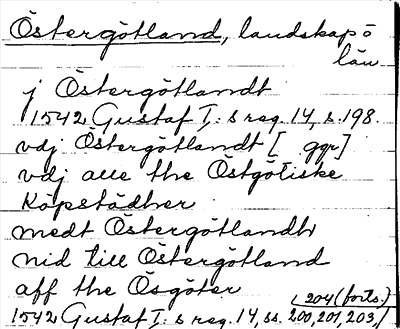 Östergötland, landskap o
län
j Östergötlandt
1542 Gustaf I: s reg. 14, s. 198.
vdj Östergötlandt [ ggr]
vdj alle the Östgötiske
Köpstädher
medt Östergötlandh
nid till Östergötland
aff the Ösgöter
204 (forts.)
1542 Gustaf I: s reg. 14, ss. 200, 201, 203,